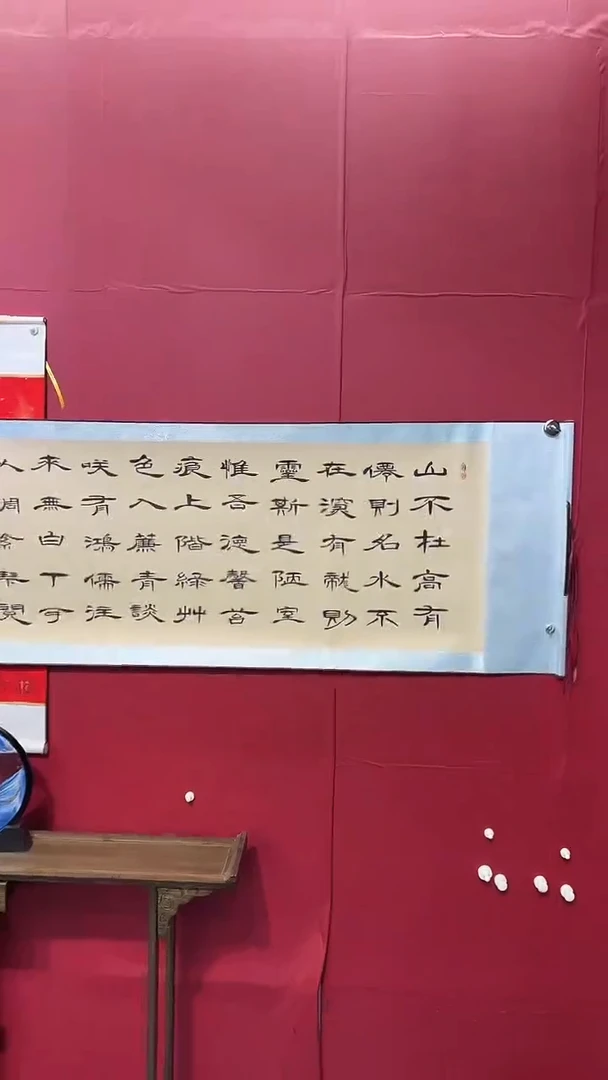 山不杜高有
僊則名水不
在深有龍則
靈斯是陋室
惟吾德馨苔
痕上階綠艸
色入簾青談
咲有鴻儒往
來無白丁可